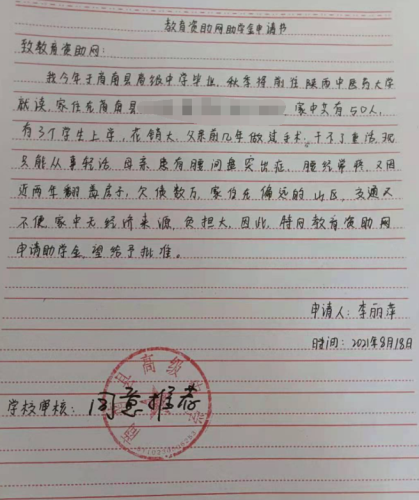 教育资助网助学金申请书
致教育资助网:
我今年于商南县高级中学毕业,秋季将前往陕西中医药大学
就读,家住在商南县 家中共有50人,
有3个学生上学,花销大,父亲前几年做过手术,干不了重活,现
只能从事轻活,母亲患有腰间盘突出症,腰经常疼,又因
近两年翻盖房子,欠债数万,家住在偏远的山区,交通又
不便,家中无经济来源,负担大,因此,特向教育资助网
申请助学金,望给予批准。
申请人:李丽萍
时间:2021年8月18日
学校审核:同意推荐
高级